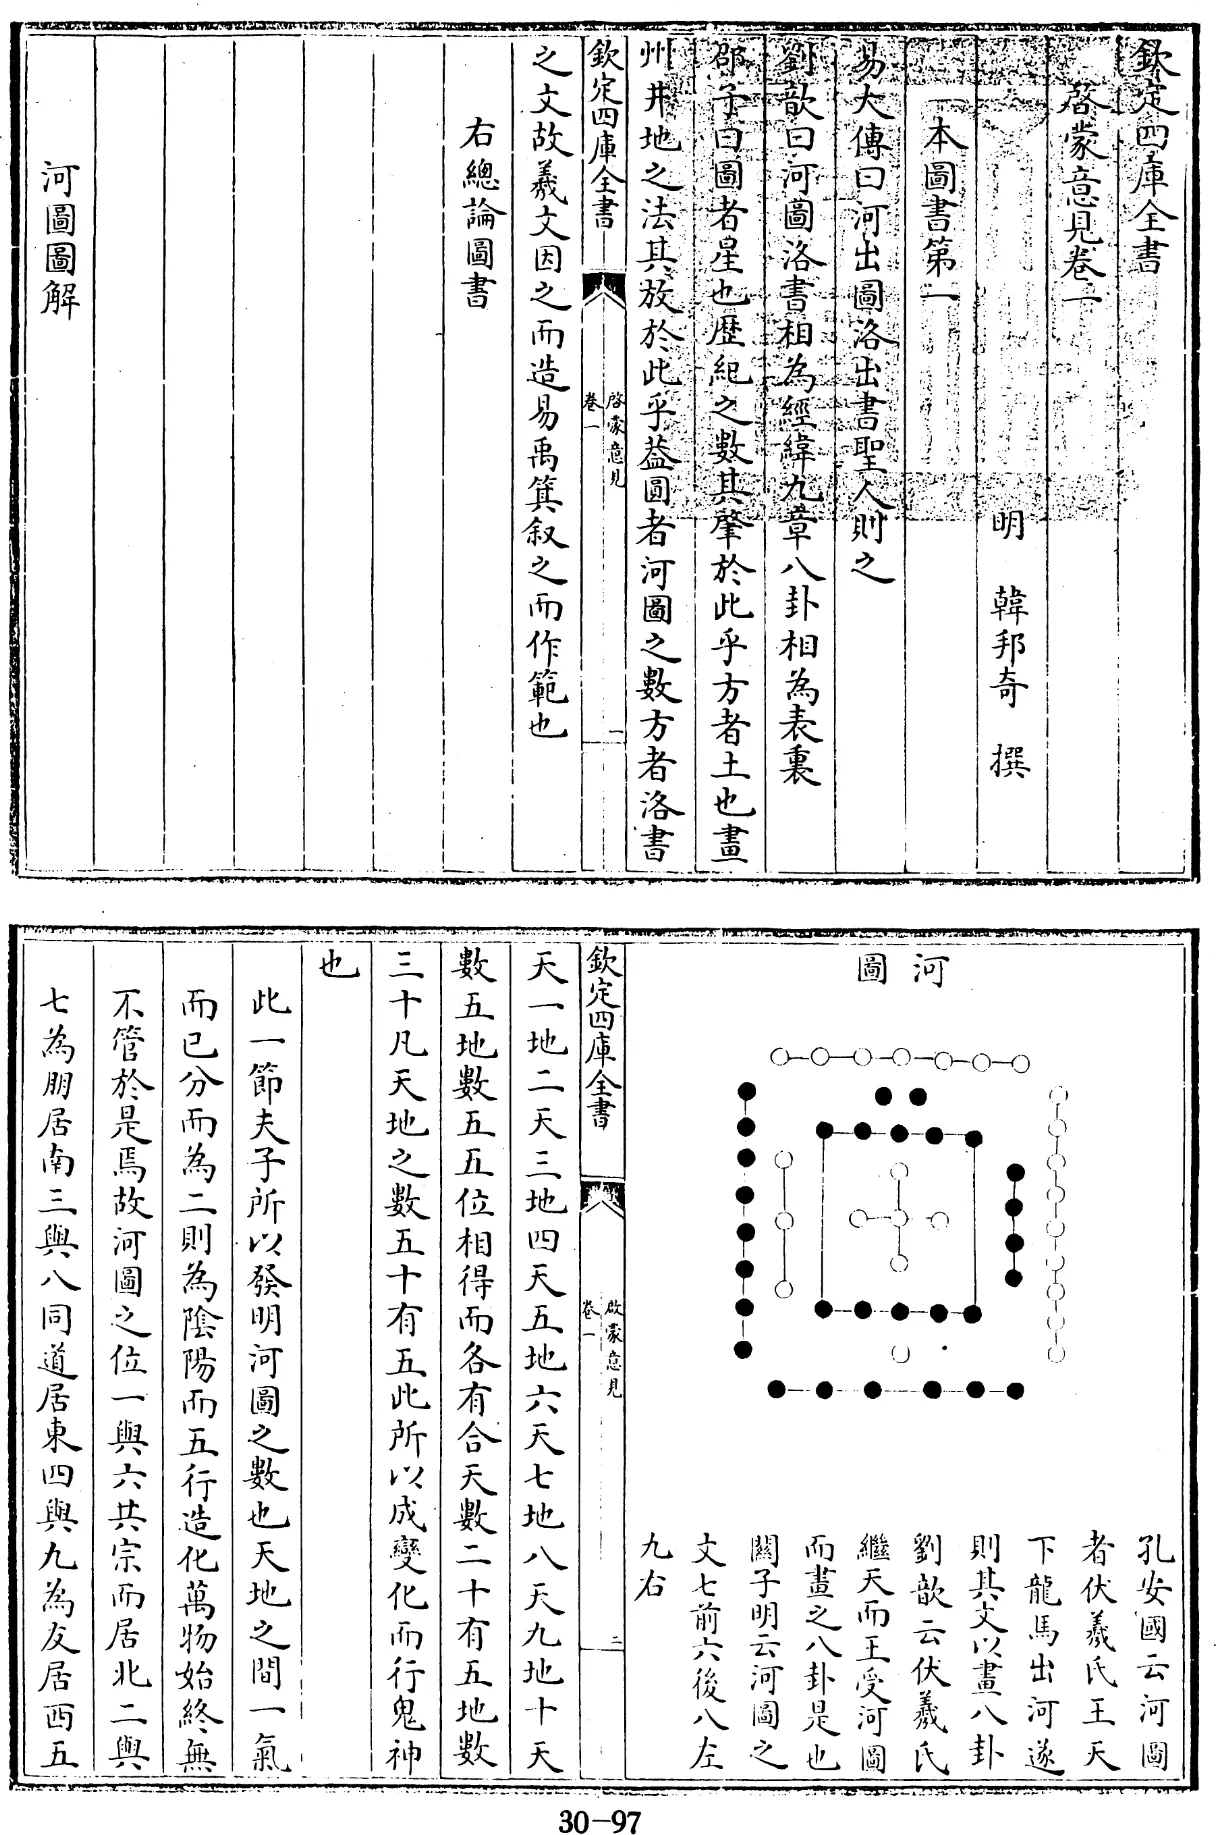 欽定四庫全書
啓蒙意見卷一
明 韓邦奇 撰
本圖書第一
易大傳曰河出圖洛出書聖人則之
劉歆曰河圖洛書相為經緯九章八卦相為表裏
邵子曰圖者星也歷紀之數其肇於此乎方者土也畫
州井地之法其放於此乎葢圓者河圖之數方者洛書
欽定四庫全書
啓蒙意見
卷一
一
之文故羲文因之而造易禹箕叙之而作範也
右總論圖書
河圖圖解
河圖
孔安國云河圖
者伏羲氏王天
下龍馬出河遂
則其文以畫八卦
劉歆云伏羲氏
繼天而王受河圖
而畫之八卦是也
關子明云河圖之
文七前六後八左
九右
欽定四庫全書
啟蒙意見
卷一
二
天一地二天三地四天五地六天七地八天九地十天
數五地數五五位相得而各有合天數二十有五地數
三十凡天地之數五十有五此所以成變化而行鬼神
也
此一節夫子所以發明河圖之數也天地之間一氣
而已分而為二則為陰陽而五行造化萬物始終無
不管於是焉故河圖之位一與六共宗而居北二與
七為朋居南三與八同道居東四與九為友居西五
30-97